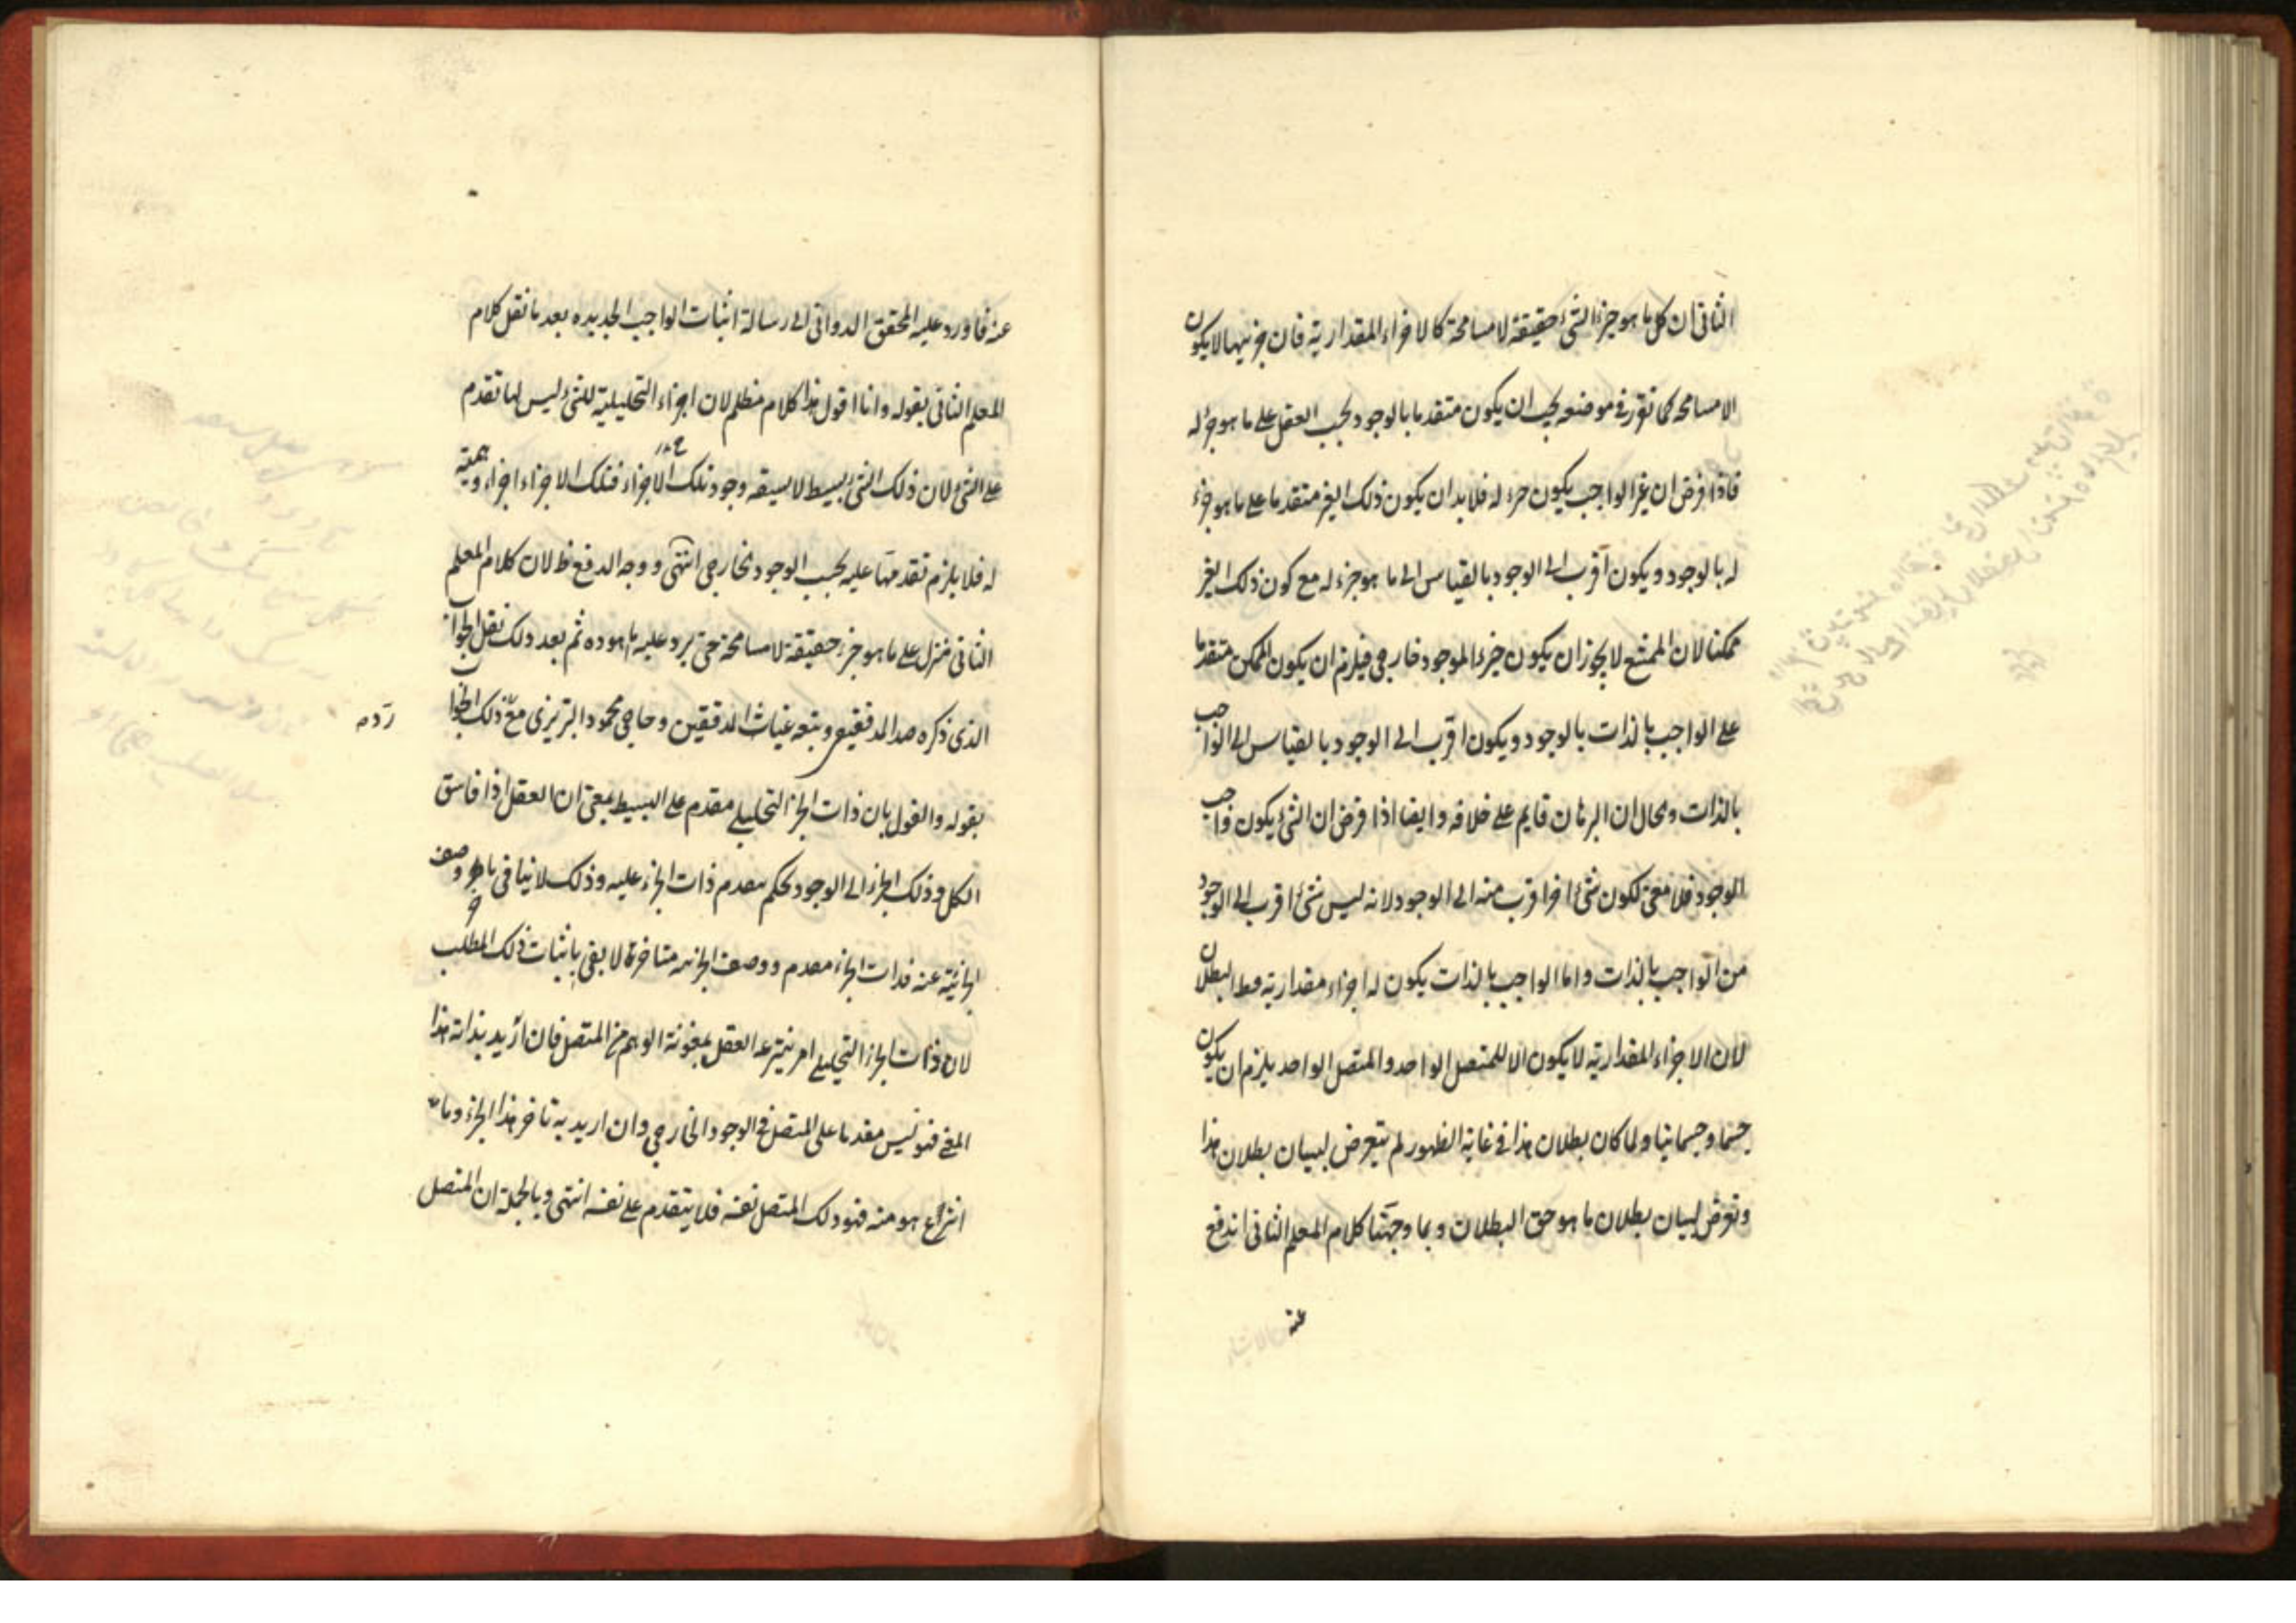 الثانی ان كل ما هو جزء الشیء حقیقة لا مسامحة كالاجزاء المقداریة فان جزئیتها لا یكون
الا مسامحة كما تقرر فی موضعه یجب ان یكون متقدما بالوجود بحسب العقل علی ما هو جزء له
فاذا فرض ان غیر الواجب یكون جزء له فلا بد ان یكون ذلك الغیر متقدما علی ما هو جزء
له بالوجود و یكون اقرب الی الوجود بالقیاس الی ما هو جزء له مع كون ذلك الغیر
ممكنا لان الممتنع لا یجوز ان یكون جزء الموجود خارجی فیلزم ان یكون الممكن متقدما
علی الواجب بالذات بالوجود و یكون اقرب الی الوجود بالقیاس الی الواجب
بالذات و محال ان البرهان قایم علی خلافه و ایضا اذا فرض ان الشیء یكون واجب
الوجود فلا معنی لكون شیء اخر اقرب منه الی الوجود لانه لیس شیء اقرب الی الوجود
من الواجب بالذات و اما الواجب بالذات یكون له اجزاء مقداریة البطلان
لان الاجزاء المقداریة لا یكون الا للمتصل الواحد و المتصل الواحد یلزم ان یكون
جسما و جسمانیا و لما كان بطلان هذا فی غایة الظهور لم یتعرض لبیان بطلان هذا
و تعرض لبیان بطلان ما هو حق البطلان و بما وجهنا كلام المعلم الثانی اندفع
عنه
عنه ما اورد علیه المحقق الدوانی فی رسالة اثبات الواجب الجدیده بعد ما نقل كلام
المعلم الثانی بقوله و انا اقول هذا كلام مظلم لان اجزاء التحلیلیة للشیء لیس لها تقدم
علی الشیء لان ذلك الشیء بسیط لا یسبقه وجود تلك الاجزاء فتلك الاجزاء اجزاء وهمیة
له فلا یلزم تقدمها علیه بحسب الوجود الخارجی انتهی و وجه الدفع ظ لان كلام المعلم
الثانی منزل علی ما هو جزء حقیقة لا مسامحة حتی یرد علیه ما اورده ثم بعد ذلك نقل الجواب
الذی ذكره صدر المدققین و تبعه غیاث المدققین و حاجی محمود التبریزی مع ذلك الجواب
ردّه
بقوله و القول بان ذات الجزء التحلیلی مقدم علی البسیط بمعنی ان العقل اذا قاس
الكل و ذلك الجزء الی الوجود حكم بتقدم ذات الجزء علیه و ذلك لا ینافی تاخر وصف
الجزئیة عنه فذات الجزء مقدم و وصف الجزئیة متاخر لا یفی باثبات ذلك المطلب
لان ذات الجزء التحلیلی امر ینتزعه العقل بمعونة الوهم من المتصل فان ارید بذاته هذا
المعنی فهو لیس مقدما علی المتصل فی الوجود الخارجی و ان ارید به تاخر هذا الجزء و ما
انتزاع هو منه فهو ذلك المتصل نفسه فلا یتقدم علی نفسه انتهی و بالجملة ان المتصل